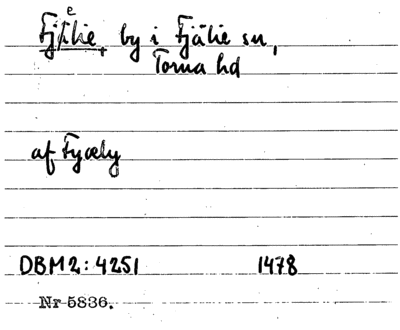 Fjelie, by i Fjälie sn,
Torna hd
af Fyæly
DBM2:4251 1478
Nr 5836.